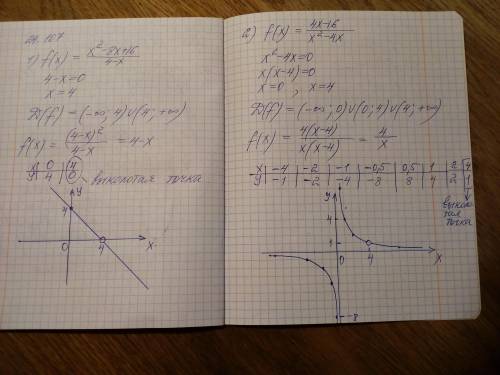 24.107
1) f(x) = (x²-8x+16)/(4-x)
4-x=0
x=4
D(f) = (-∞; 4) ∪ (4; +∞)
f(x) = (4-x)²/(4-x) = 4-x
x | 0 | 4
y | 4 | 0
выколотая точка
y
4
0
4
x
2) f(x) = (4x-16)/(x²-4x)
x²-4x=0
x(x-4)=0
x=0 , x=4
D(f) = (-∞; 0) ∪ (0; 4) ∪ (4; +∞)
f(x) = 4(x-4)/(x(x-4)) = 4/x
x | -4 | -2 | -1 | -0,5 | 0,5 | 1 | 2 | 4
y | -1 | -2 | -4 | -8 | 8 | 4 | 2 | 1
выколо
тая
точка
y
4
1
0
4
x
-8